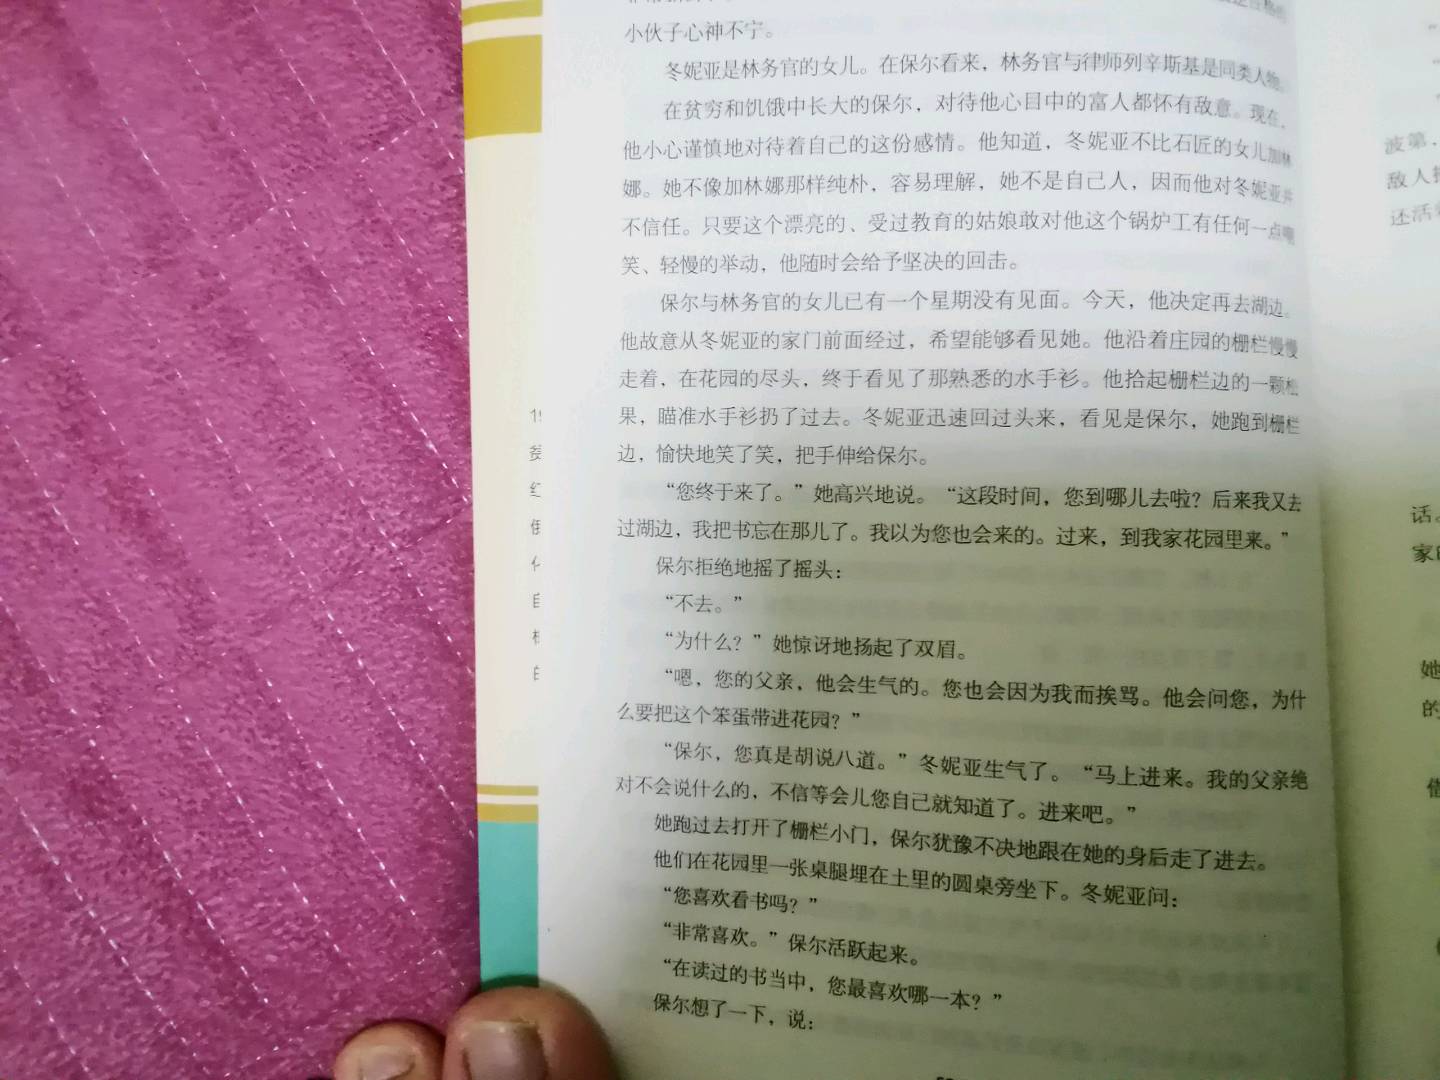 小伙子心神不宁。
冬妮亚是林务官的女儿。在保尔看来，林务官与律师列辛斯基是同类人物。
在贫穷和饥饿中长大的保尔，对待他心目中的富人都怀有敌意。现在，
他小心谨慎地对待着自己的这份感情。他知道，冬妮亚不比石匠的女儿加林
娜。她不像加林娜那样纯朴，容易理解，她不是自己人，因而他对冬妮亚并
不信任。只要这个漂亮的、受过教育的姑娘敢对他这个锅炉工有任何一点嘲
笑、轻慢的举动，他随时会给予坚决的回击。
保尔与林务官的女儿已有一个星期没有见面。今天，他决定再去湖边。
他故意从冬妮亚的家门前面经过，希望能够看见她。他沿着庄园的栅栏慢慢
走着，在花园的尽头，终于看见了那熟悉的水手衫。他拾起栅栏边的一颗松
果，瞄准水手衫扔了过去。冬妮亚迅速回过头来，看见是保尔，她跑到栅栏
边，愉快地笑了笑，把手伸给保尔。
“您终于来了。”她高兴地说。“这段时间，您到哪儿去啦？后来我又去
过湖边，我把书忘在那儿了。我以为您也会来的。过来，到我家花园里来。”
保尔拒绝地摇了摇头：
“不去。”
“为什么？”她惊讶地扬起了双眉。
“嗯，您的父亲，他会生气的。您也会因为我而挨骂。他会问您，为什
么要把这个笨蛋带进花园？”
“保尔，您真是胡说八道。”冬妮亚生气了。“马上进来。我的父亲绝
对不会说什么的，不信等会儿您自己就知道了。进来吧。”
她跑过去打开了栅栏小门，保尔犹豫不决地跟在她的身后走了进去。
他们在花园里一张桌腿埋在土里的圆桌旁坐下。冬妮亚问：
“您喜欢看书吗？”
“非常喜欢。”保尔活跃起来。
“在读过的书当中，您最喜欢哪一本？”
保尔想了一下，说：
波第
敌人
还活
话。
家
她
的
借